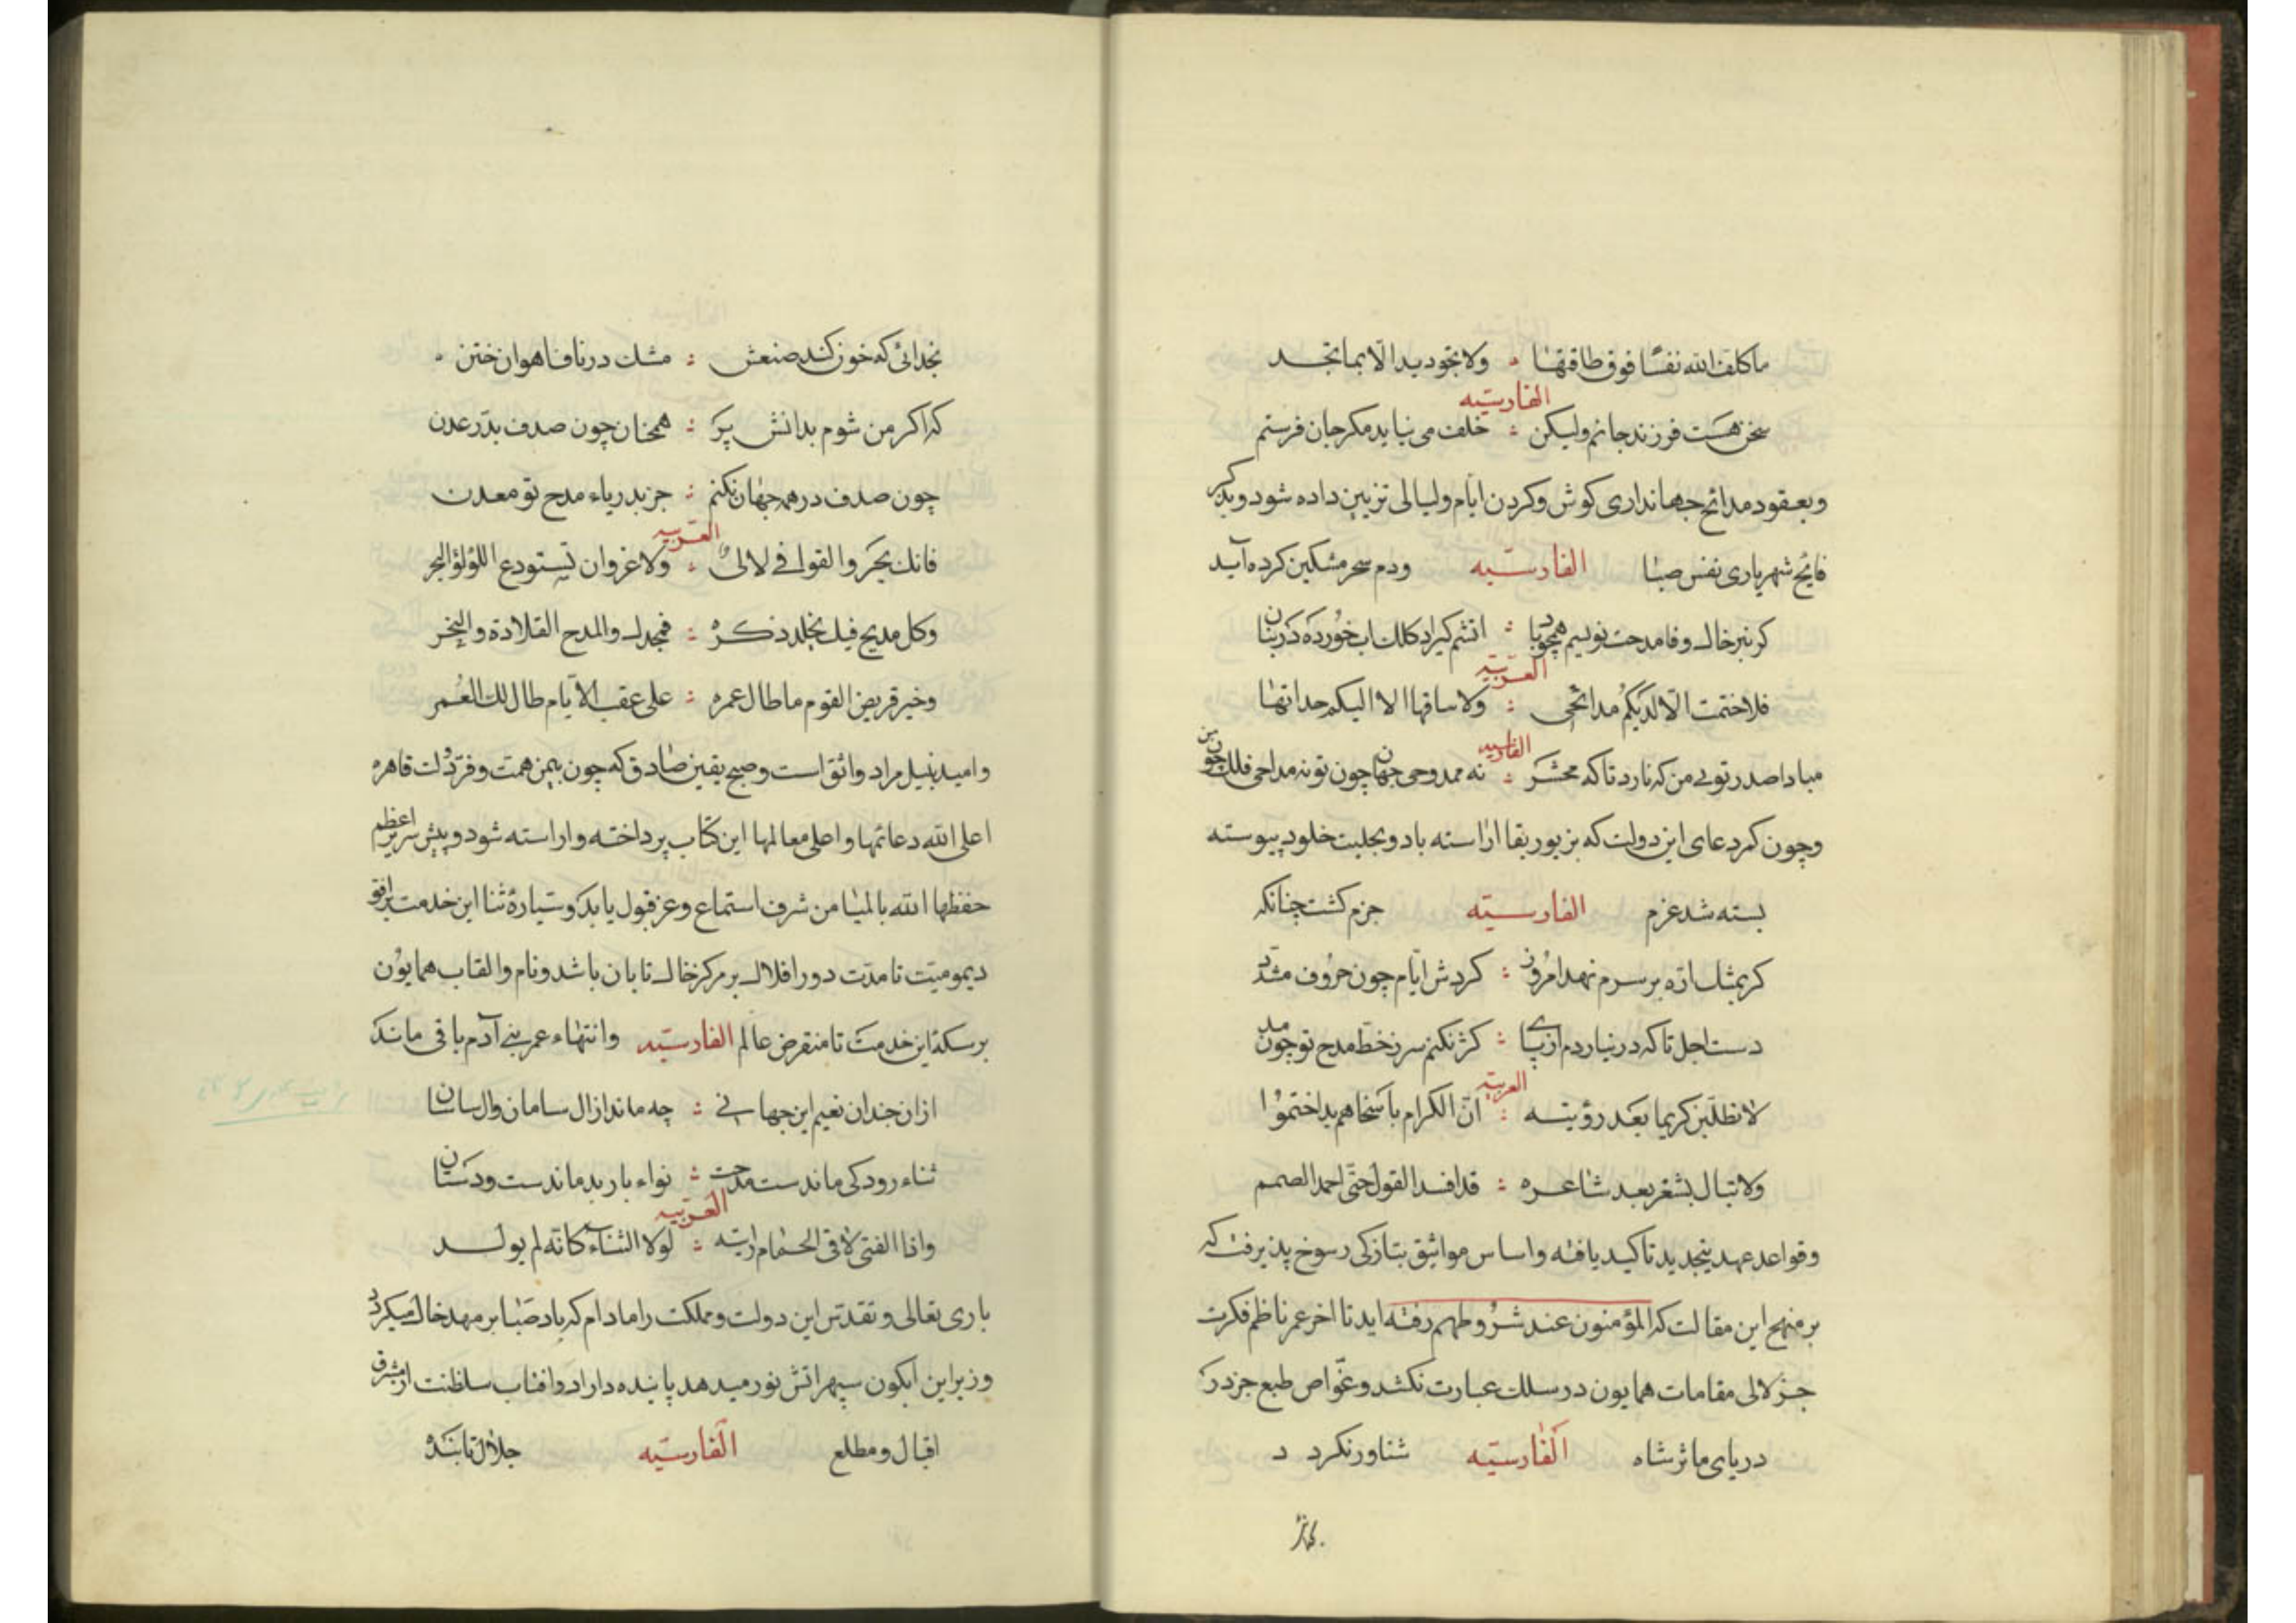 ما كلف الله نفسًا فوق طاقتها ۞ ولا تجود يد الّا بما تجد
الفارسیّه
سخن هست فرزند جانم ولیکن ؛ خلف می نیاید مکر جان فرستم
وبعقود مدائح جهانداری کوش وکردن ایّام ولیالی تزیین داده شود وبذکر
فایح شهریاری نفس صبا الفارسیّه ودم سحر مشکین کرده آید
کر بنبر خاک وفا مدحت نویسم همچو باد ؛ اتشم کیرد کلک اب خورده در بنان
العربیّه
فلا ختمت الّا لدیکم مدائحی ؛ ولا ساقها الا الیکم حداتها
الفارسیه
مبادا صدر تو بی من که نارد تا که محشر ؛ نه ممدوحی جهان چون تو نه مداحی فلک چون من
وچون کمر دعای این دولت که بزیور بقا اراسته باد وبحلیت خلود پیوسته
بسته شد عزم الفارسیّه جزم کشت چنانکه
کر بمثل ارّه بر سرم نهد امروز ؛ کردش ایّام چون حروف مشدّد
دست اجل تا که در نیاردم از پای ؛ کژ نکنم سر ز خط مدح تو چون مد
العربیّه
لا تطلبن کریما بعد رؤیته ؛ انّ الکرام باسخاهم یدا ختموا
ولا تبال بشعر بعد شاعره ؛ قد افسد القول حتّی احمد الصمم
وقواعد عهد بتجدید تاکید یافته واساس مواثیق بتازکی رسوخ پذیرفت که
بر منهج این مقالت که المؤمنون عند شروطهم رفته اید تا اخر عمر ناظم فکرت
جز لالی مقامات همایون در سلک عبارت نکشد وغوّاص طبع جز در
دریای ماثر شاه الفارسیّه شناور نکرد د
بخدائی که خون کند صنعش ؛ مشک در ناف اهوان ختن ۰
که اکر من شوم بدانش پر ؛ همچنان چون صدف بدرّ عدن
چون صدف در همه جهان نکنم ؛ جز بدریاء مدح تو معدن
العربیه
فانك بحر والقوافی لالئ ؛ ولا غرو ان تستودع اللؤلؤ البحر
وکل مدیح فیك یخلد ذکره ؛ فمجدك والمدح القلادة والنحر
وخیر قریض القوم ما طال عمره ؛ علی عقب الایّام طال لك العمر
وامید بنیل مراد واثق است وصبح یقین صادق که چون بیمن همت وفرّ دولت قاهره
اعلی الله دعائمها واعلی معالمها این کتاب پرداخته واراسته شود وپیش سریر اعظم
حفظها الله بالمیامن شرف استماع وعز قبول یابد وسیارهٔ ثنا این خدمت بر افق
دیمومیّت تا مدّت دور افلاک بر مرکز خاک تابان باشد ونام والقاب همایون
بر سکهٔ این خدمت تا منقرض عالم الفارسیّه وانتهاء عمر بنی آدم باقی ماند
ازان چندان نعیم این جهانی ؛ چه ماند از ال سامان وال ساسان
ثناء رودکی ماندست مدحت ؛ نواء باربد ماندست ودستان
العربیه
واذا الفتی لاقی الحمام رایته ؛ لولا الثناء کانّه لم یولد
باری تعالی وتقدّس این دولت ومملکت را مادام که باد صبا بر مهد خاک میکردد
وزیر این ابکون سپهر اتش نور میدهد پاینده داراد وافتاب سلطنت از مشرق
اقبال ومطلع الفارسیّه جلال تابنده